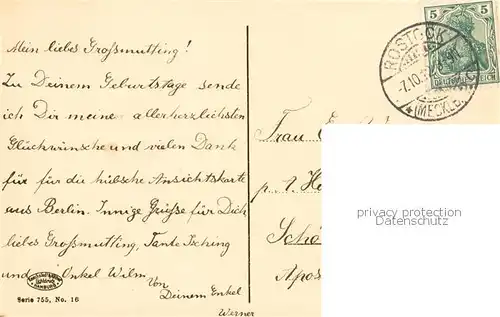 Mein liebes Großmutting!
Zu Deinem Geburtstage sende
ich Dir meine allerherzlichsten
Glückwünsche und vielen Dank
für für die hübsche Ansichtskarte
aus Berlin. Innige Grüße für Dich
liebes Großmutting, Tante Tsching
und Onkel Wilm
Von
Deinem Enkel
Werner
HAMBURG
Serie 755, No. 16
5 5
DEUTSCHES REICH
ROSTOCK
7.10.
(MECKLB.)
Frau
p. A. He
Schö
Apos
privacy protection
Datenschutz